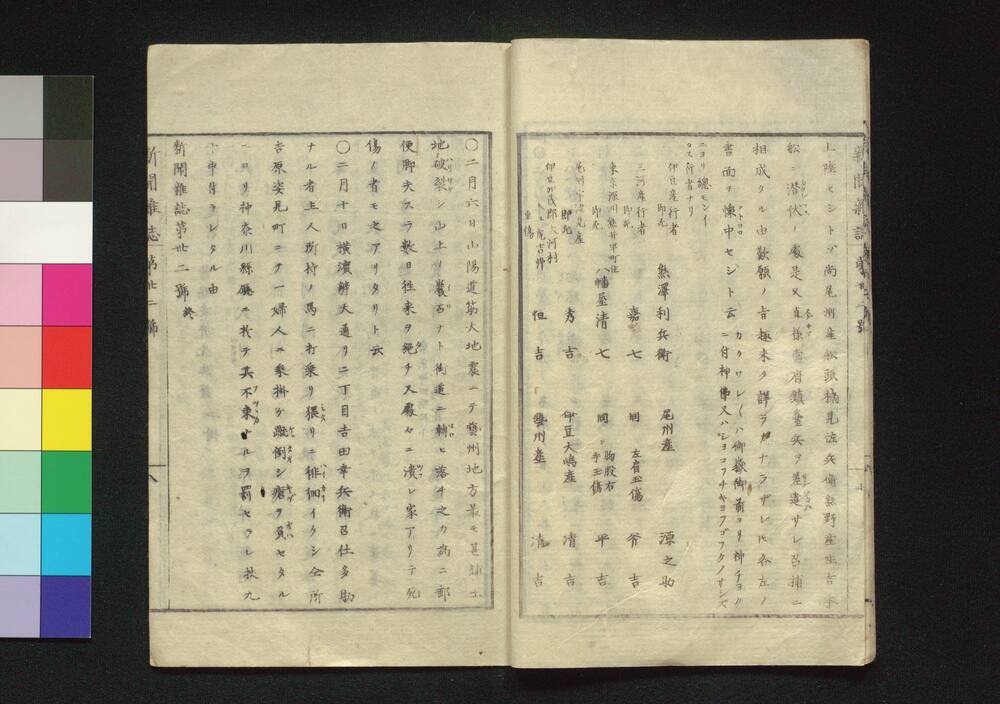 上陸セシトゾ尚尾州産松頭 見佐兵衛 野産庄吉
舩ニ潜伏ノ處是又直様當府鎮臺兵ヲ差遣サレ召捕ニ
相成タル由歎願ノ旨趣未タ詳ラカナラザレ 各左ノ
書面ヲ懐中セシト云
カクワレ〱ハ御嶽御前ヨリ神チヨリ
ニ付神佛又ハ
ニヨリ魂モシイ
タス行者ナリ
伊豆産行者
即死
熊澤利兵衛
尾州産
源之助
三河産行者
即死
嘉七
同
左肩玉傷
斧吉
東京深川熊井町住
即死
八幡屋清七
同
胸股右手玉傷
平吉
尾州 産
即死
秀吉
伊豆大嶋産
清吉
伊豆 茂郡大河村
重傷
恒吉
藝州産
清吉
〇二月六日山陽道筋大地震ニテ藝州地方最モ甚鋪土
地破裂シ山上ノ巖石ナト街道ニ轉ヒ落チ之カ為ニ郵
便脚夫スラ數日往来ヲ絶チ又處々ニ潰レ家アリテ死
傷ノ者モ之アリタリト云
〇二月十日横濱辨天通リ二丁目吉田幸兵衛召仕多助
ナル者主人所持ノ馬ニ打乗リ猥リニ徘徊イタシ仝所
吉原姿見町ニテ一婦人ニ乗掛ケ蹴倒シ疵ヲ負セタル
ニヨリ神奈川縣廳ニ於テ其不束ナルヲ罰セラレ杖九
十申付ラレタル由
新聞雜誌第卅二號 終
新聞雜誌 第卅二號
八